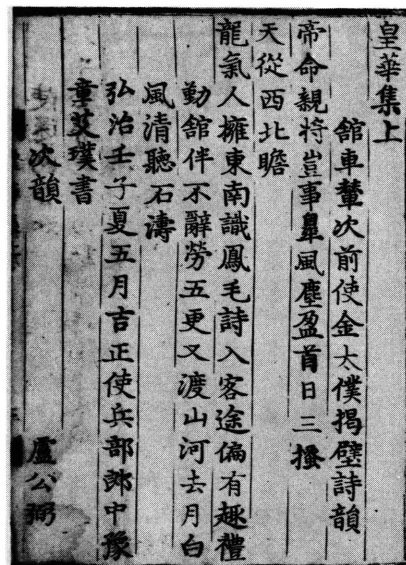 皇華集上
舘車輦次前使金太僕揭壁詩韻
帝命親將豈事臯風塵盈首日三搔
天從西北瞻
龍氣人擁東南識鳳毛詩入客途偏有趣禮
勤舘伴不辭勞五更又渡山河去月白
風清聽石濤
弘治壬子夏五月吉正使兵部郎中豫
章艾璞書
次韻 盧公弼